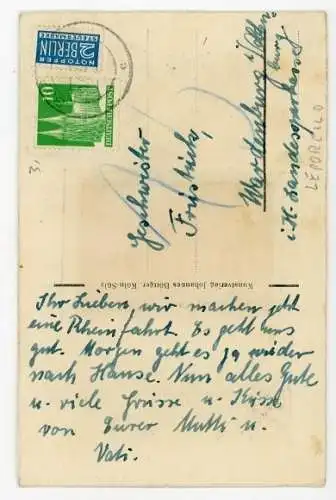 NOTOPFER
2 BERLIN
STEUERMARKE
10
DEUTSCHE POST
Geschwister
Wardenburg i/Olden-
burg
i. H. Landessparkasse
LEPORELLO
Kunstverlag Johannes Böttger, Köln-Sülz
Ihr Lieben, wir machen jetzt
eine Rheinfahrt. Es geht uns
gut. Morgen geht es ja wieder
nach Hause. Nun alles Gute
u. viele Grüsse u. Küsse
von Eurer Mutti u.
Vati.